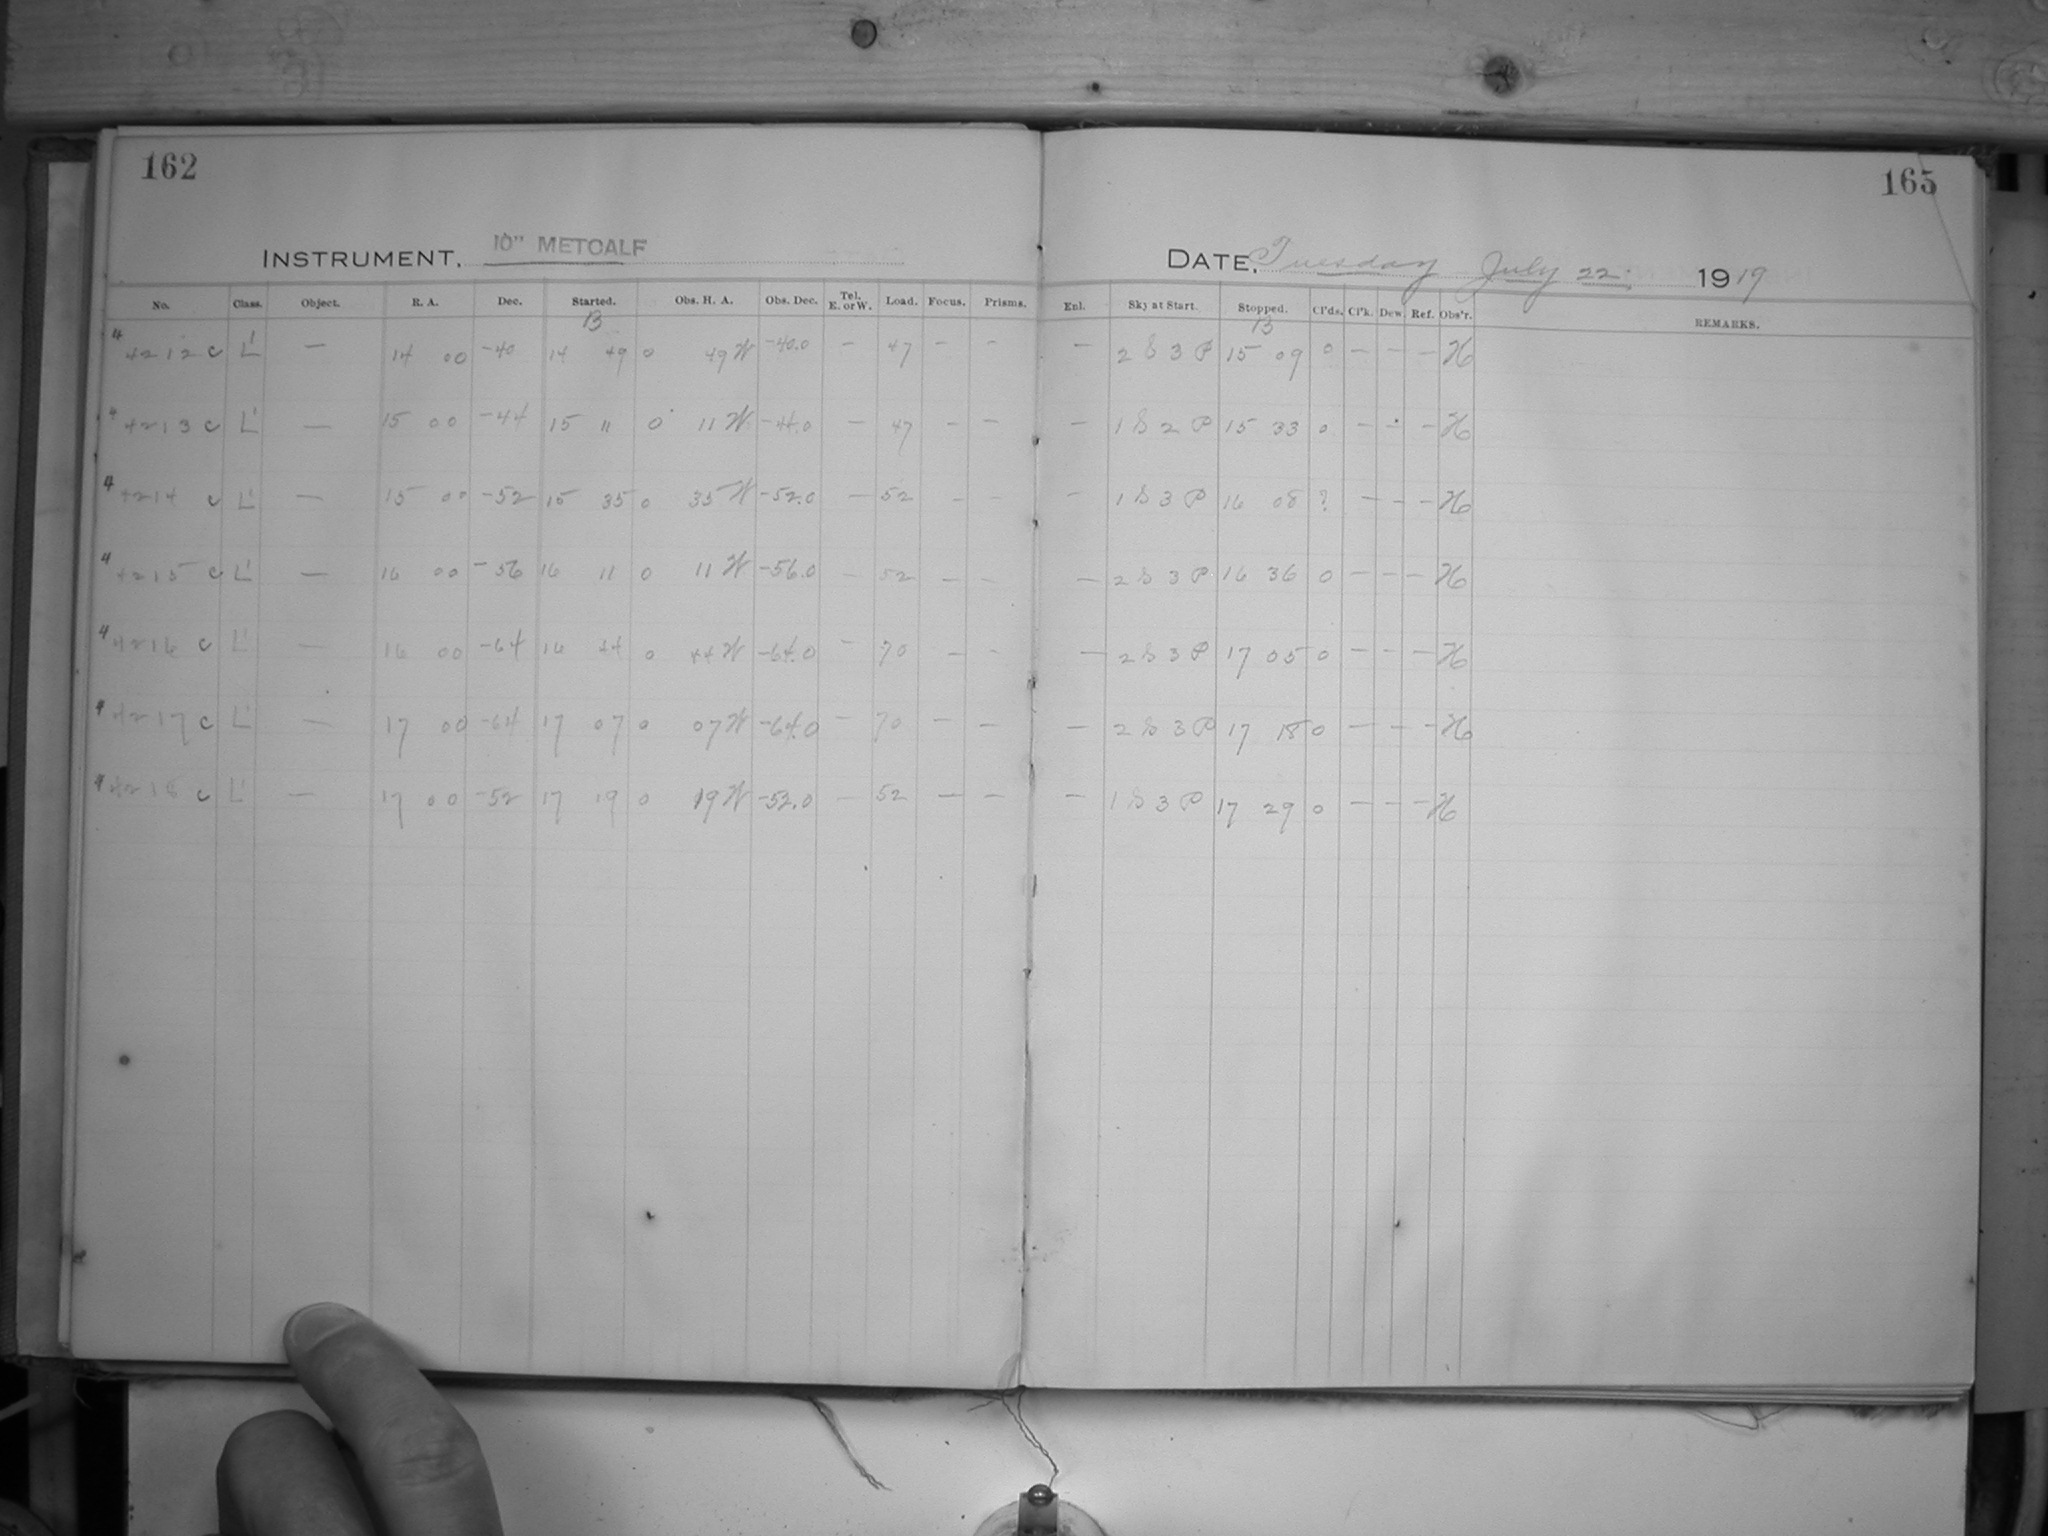 162
165
INSTRUMENT. 10" METCALF
DATE. Tuesday July 22. 1919
No. Class. Object. R. A. Dec. Started. Obs. H. A. Obs. Dec. Tel. E. or W. Load. Focus. Prisms. Enl. Sky at Start. Stopped. Cl'ds. Cl'k. Dew. Ref. Obs'r. REMARKS.
B B
4 4212 c L' — 14 00 -40 14 49 0 49 W -40.0 — 47 — — — 2 S 3 P 15 09 0 — — — H
4 4213 c L' — 15 00 -44 15 11 0 11 W -44.0 — 47 — — — 1 S 2 P 15 33 0 — — — H
4 4214 c L' — 15 00 -52 15 35 0 35 W -52.0 — 52 — — — 1 S 3 P 16 08 ? — — — H
4 4215 c L' — 16 00 -56 16 11 0 11 W -56.0 — 52 — — — 2 S 3 P 16 36 0 — — — H
4 4216 c L' — 16 00 -64 16 44 0 44 W -64.0 — 70 — — — 2 S 3 P 17 05 0 — — — H
4 4217 c L' — 17 00 -64 17 07 0 07 W -64.0 — 70 — — — 2 S 3 P 17 18 0 — — — H
4 4218 c L' — 17 00 -52 17 19 0 19 W -52.0 — 52 — — — 1 S 3 P 17 29 0 — — — H